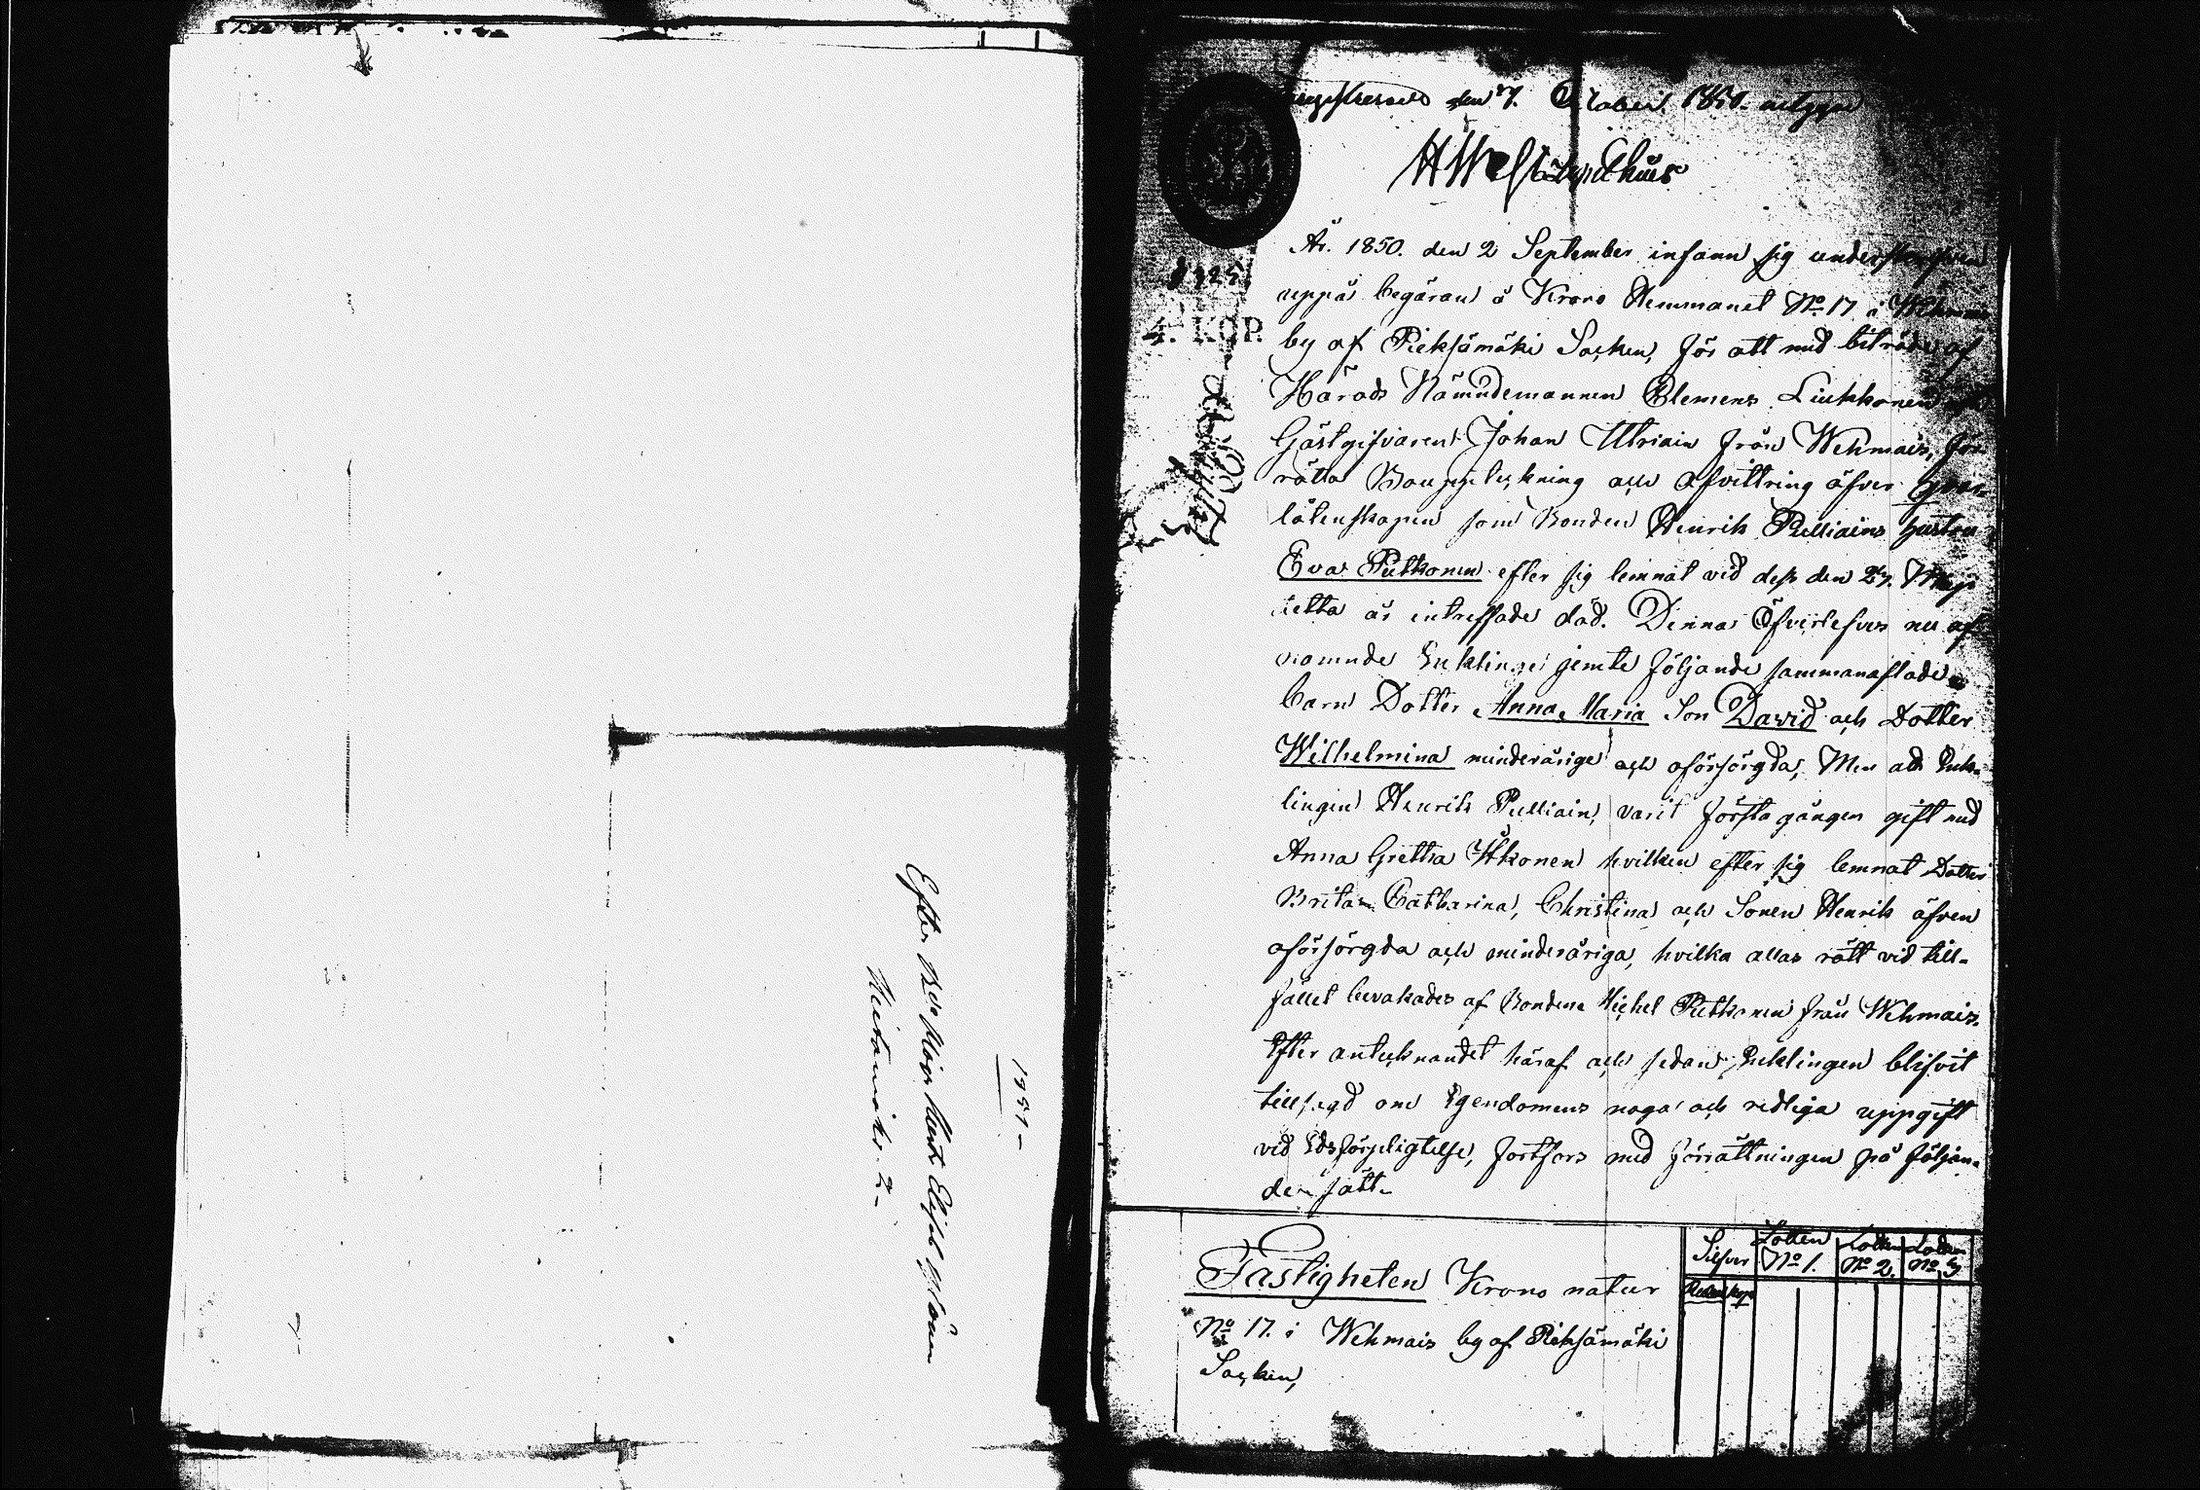 1851 –
Efter Bde Måg Henr. Elisab.
2 –
den 7. October 1850.
År. 1850. den 2 September infann sig undertecknad
uppå begäran å Krono Hemmanet No. 17 i Wehmais
by af Pieksämäki Socken, för att med biträde af
Härads Nämndemannen Clemens Liukkonen och
Gästgifvaren Johan Utriain från Wehmais, för-
rätta Bouppteckning och Afvittring öfver Qvar-
låtenskapen som Bonden Henrik Pulliains hustru
Eva Putkonen efter sig lemnat vid dess den 27. Maji
detta år intreffade död. Denna Öfverlefves nu af
nämnde Enklinge jemte följande sammanaflade
barn Dotter Anna Maria Son David och Dotter
Wilhelmina minderårige och oförsörgda, Men att Enk-
lingen Henrik Pulliain, varit första gången gift med
Anna Gretha Ikonen hvilken efter sig lemnat Dotter
Brita Catharina, Christina och Sonen Henrik äfven
oförsörgda och minderåriga, hvilka allas rätt vid till-
fället bevakades af Bonden Michel Putkonen från Wehmais.
Efter antecknandet häraf och sedan Enklingen blifvit
tillsagd om Egendomens noga och redliga uppgift
vid Edsförpligtelse, fortfors med förrättningen på följan-
de sätt.
Fastigheten Krono natur
No 17. i Wehmais by af Pieksämäki
Socken,
Silfver
Lotten No 1.
Lotten No 2.
Lotten No 3
Rubel kop
4. KOP.